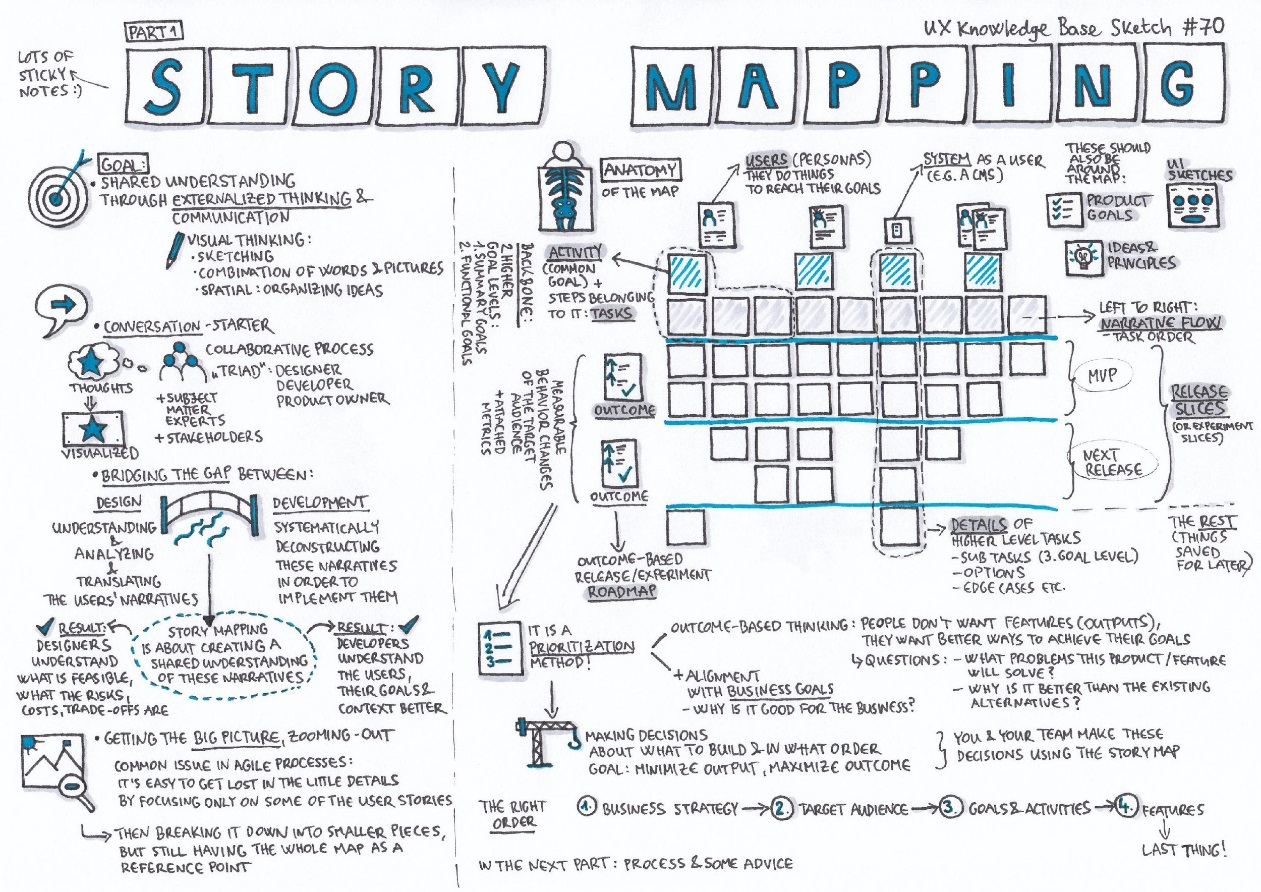 PART 1
UX Knowledge Base Sketch #70
LOTS OF
STICKY
NOTES :)
STORY MAPPING
GOAL:
• SHARED UNDERSTANDING
THROUGH EXTERNALIZED THINKING &
COMMUNICATION
VISUAL THINKING:
• SKETCHING
• COMBINATION OF WORDS & PICTURES
• SPATIAL: ORGANIZING IDEAS
• CONVERSATION-STARTER
THOUGHTS
VISUALIZED
COLLABORATIVE PROCESS
"TRIAD": DESIGNER
DEVELOPER
PRODUCT OWNER
+ SUBJECT
MATTER
EXPERTS
+ STAKEHOLDERS
• BRIDGING THE GAP BETWEEN:
DESIGN
UNDERSTANDING
&
ANALYZING
&
TRANSLATING
THE USERS' NARRATIVES
DEVELOPMENT
SYSTEMATICALLY
DECONSTRUCTING
THESE NARRATIVES
IN ORDER TO
IMPLEMENT THEM
RESULT:
DESIGNERS
UNDERSTAND
WHAT IS FEASIBLE,
WHAT THE RISKS,
COSTS, TRADE-OFFS ARE
STORY MAPPING
IS ABOUT CREATING A
SHARED UNDERSTANDING
OF THESE NARRATIVES
RESULT:
DEVELOPERS
UNDERSTAND
THE USERS,
THEIR GOALS &
CONTEXT BETTER
• GETTING THE BIG PICTURE, ZOOMING-OUT
COMMON ISSUE IN AGILE PROCESSES:
IT'S EASY TO GET LOST IN THE LITTLE DETAILS
BY FOCUSING ONLY ON SOME OF THE USER STORIES
THEN BREAKING IT DOWN INTO SMALLER PIECES,
BUT STILL HAVING THE WHOLE MAP AS A
REFERENCE POINT
ANATOMY
OF THE MAP
USERS (PERSONAS)
THEY DO THINGS
TO REACH THEIR GOALS
SYSTEM AS A USER
(E.G. A CMS)
THESE SHOULD
ALSO BE
AROUND
THE MAP:
PRODUCT
GOALS
UI
SKETCHES
IDEAS &
PRINCIPLES
BACKBONE:
2 HIGHER
GOAL LEVELS:
1. SUMMARY GOALS
2. FUNCTIONAL GOALS
ACTIVITY
(COMMON
GOAL) +
STEPS BELONGING
TO IT: TASKS
LEFT TO RIGHT:
NARRATIVE FLOW
- TASK ORDER
MEASURABLE
BEHAVIOR CHANGES
OF THE TARGET
AUDIENCE
+ ATTACHED
METRICS
OUTCOME
OUTCOME
OUTCOME-BASED
RELEASE/EXPERIMENT
ROADMAP
MVP
NEXT
RELEASE
RELEASE
SLICES
(OR EXPERIMENT
SLICES)
THE REST
(THINGS
SAVED
FOR LATER)
DETAILS OF
HIGHER LEVEL TASKS
- SUB TASKS (3. GOAL LEVEL)
- OPTIONS
- EDGE CASES ETC.
1
2
3
IT IS A
PRIORITIZATION
METHOD!
OUTCOME-BASED THINKING: PEOPLE DON'T WANT FEATURES (OUTPUTS),
THEY WANT BETTER WAYS TO ACHIEVE THEIR GOALS
QUESTIONS: - WHAT PROBLEMS THIS PRODUCT/FEATURE
WILL SOLVE?
- WHY IS IT BETTER THAN THE EXISTING
ALTERNATIVES?
+ ALIGNMENT
WITH BUSINESS GOALS
- WHY IS IT GOOD FOR THE BUSINESS?
MAKING DECISIONS
ABOUT WHAT TO BUILD & IN WHAT ORDER
GOAL: MINIMIZE OUTPUT, MAXIMIZE OUTCOME
YOU & YOUR TEAM MAKE THESE
DECISIONS USING THE STORY MAP
THE RIGHT
ORDER
1. BUSINESS STRATEGY → 2. TARGET AUDIENCE → 3. GOALS & ACTIVITIES → 4. FEATURES
LAST THING!
IN THE NEXT PART: PROCESS & SOME ADVICE